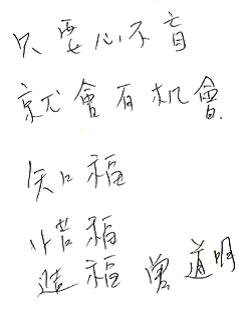 只要心不盲
就會有机會.
知福
惜福
造福 曾道明